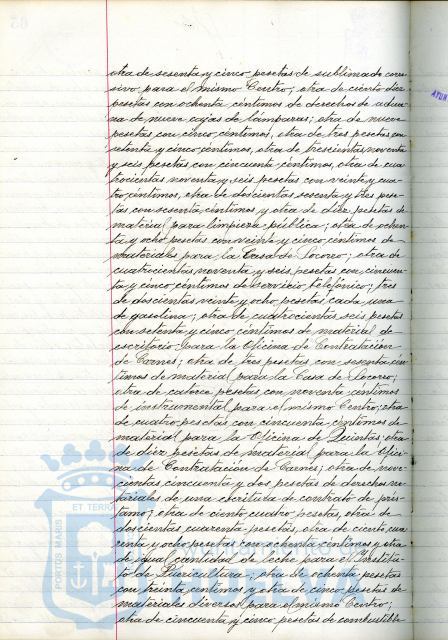 otra de sesenta y cinco pesetas de sublimado corro-
sivo para el mismo Centro; otra de ciento diez
pesetas con ochenta céntimos de derechos de adua-
na de nueve cajas de lámparas; otra de nueve
pesetas con cinco céntimos, otra de tres pesetas con
setenta y cinco céntimos, otra de trescientas noventa
y seis pesetas con cincuenta céntimos, otra de cua-
trocientas noventa y seis pesetas con veinte y cua-
tro céntimos, otra de doscientas sesenta y tres pese-
tas con sesenta céntimos y otra de diez pesetas de
material para limpieza pública; otra de ochen-
ta y ocho pesetas con veinte y cinco céntimos de
materiales para la Casa de Socorro; otra de
cuatrocientas noventa y seis pesetas con cincuen-
ta y cinco céntimos de servicio telefónico; tres
de doscientas veinte y ocho pesetas cada una
de gasolina; otra de cuatrocientas seis pesetas
con setenta y cinco céntimos de material de
escritorio para la Oficina de Contratacion
de Carnes; otra de tres pesetas con sesenta cén-
timos de material para la Casa de Socorro;
otra de catorce pesetas con noventa céntimos
de instrumental para el mismo Centro; otra
de cuatro pesetas con cincuenta céntimos de
material para la Oficina de Quintas; otra
de diez pesetas de material para la Ofici-
na de Contratacion de Carnes; otra de nove-
cientas cincuenta y dos pesetas de derechos no-
tariales de una escritura de contrato de prés-
tamo; otra de ciento cuatro pesetas, otra de
doscientas cuarenta pesetas, otra de ciento cin-
cuenta y ocho pesetas con ochenta céntimos y otra
de igual cantidad de leche para el Institu-
to de Puericultura; otra de ochenta pesetas
con treinta céntimos y otra de cinco pesetas de
materiales diversos para el mismo Centro;
otra de cincuenta y cinco pesetas de combustible
PORTUS MARIS ET TERR